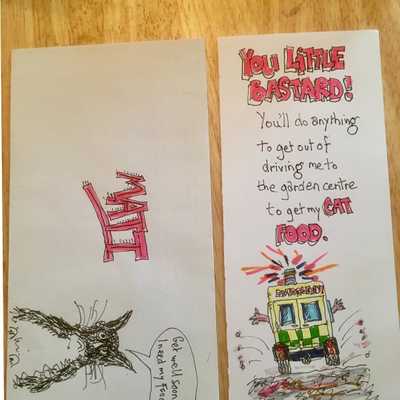 MATT
Get well soon
I need my food
YOU LITTLE
BASTARD!
You'll do anything
to get out of
driving me to
the garden centre
to get my CAT
FOOD.